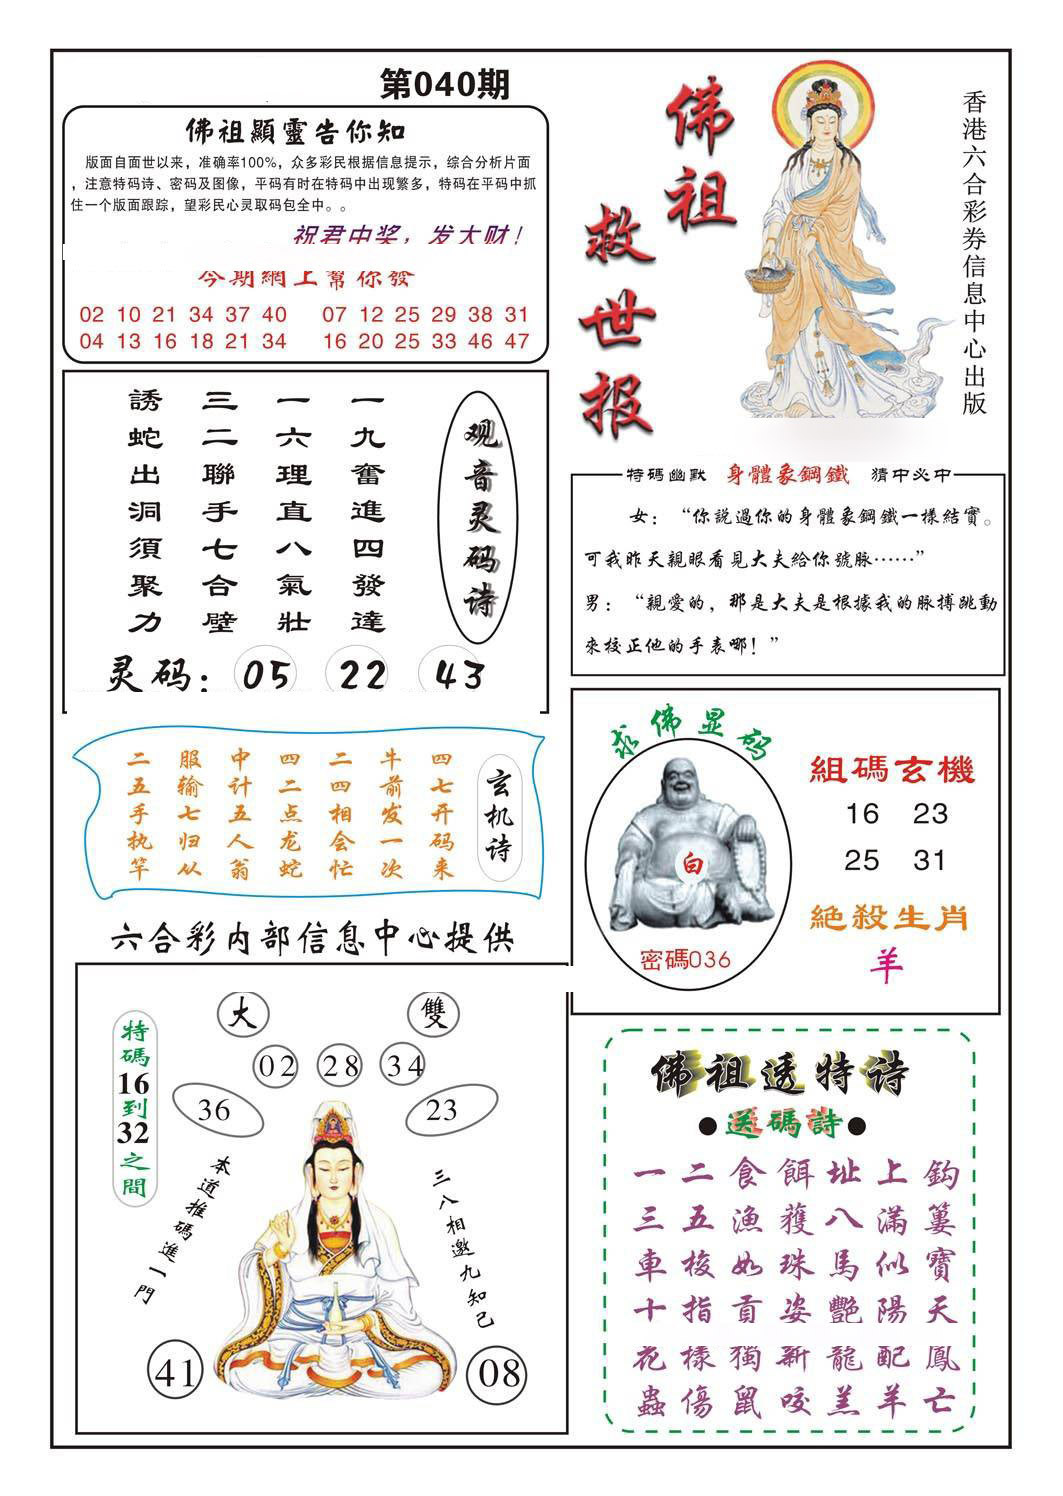 第040期
佛祖顯靈告你知
版面自面世以来，准确率100%，众多彩民根据信息提示，综合分析片面
，注意特码诗、密码及图像，平码有时在特码中出现繁多，特码在平码中抓
住一个版面跟踪，望彩民心灵取码包全中。。
祝君中奖，发大财！
今期網上幫你發
02 10 21 34 37 40 07 12 25 29 38 31
04 13 16 18 21 34 16 20 25 33 46 47
佛祖
救世报
香港六合彩券信息中心出版
观音灵码诗
一九奮進四發達
一六理直八氣壯
三二聯手七合壁
誘蛇出洞須聚力
灵码：05 22 43
特碼幽默 身體象鋼鐵 猜中必中
女：“你說過你的身體象鋼鐵一樣結實。
可我昨天親眼看見大夫給你號脉……”
男：“親愛的，那是大夫是根據我的脉搏跳動
來校正他的手表哪！”
玄机诗
四七开码来
牛前发一次
二四相会忙
四二点龙蛇
中计五人翁
服输七归从
二五手执竿
六合彩内部信息中心提供
求佛显码
白
密碼036
組碼玄機
16 23
25 31
絕殺生肖
羊
大 雙
02 28 34
36 23
特碼16到32之間
本道推碼進一門
三八相邀九知己
41 08
佛祖透特诗
●送碼詩●
一二食餌址上鈎
三五漁獲八滿簍
車梭如珠馬似寶
十指貢姿艷陽天
花樣獨新龍配鳳
蟲傷鼠咬羔羊亡